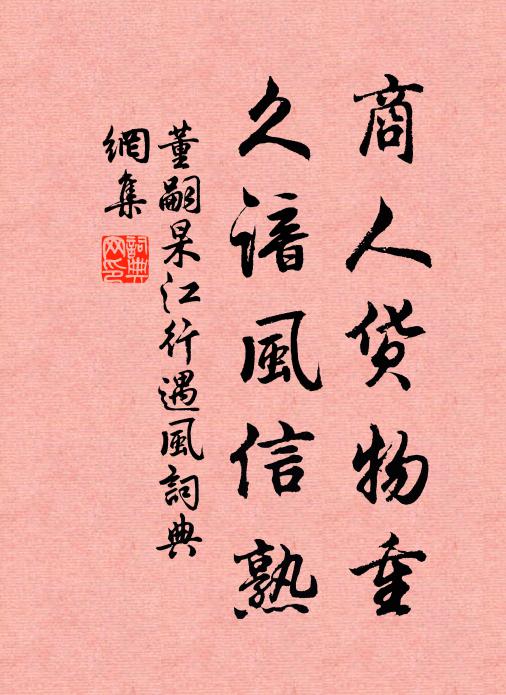 商人货物重
久谙風信熟
董嗣杲江行遇風詞典
網集
詞典網印